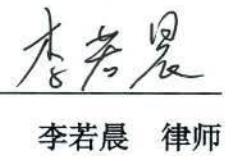 李若晨
李若晨 律师